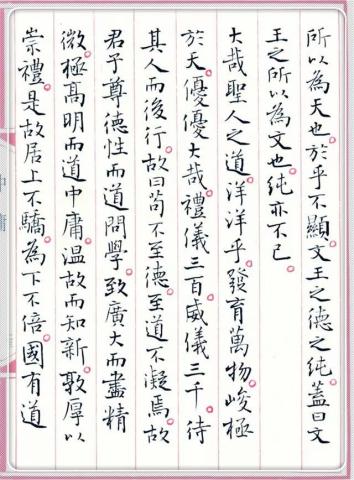 所以為天也於乎不顯文王之德之純蓋曰文
王之所以為文也純亦不已
大哉聖人之道洋洋乎發育萬物峻極
於天優優大哉禮儀三百威儀三千待
其人而後行故曰苟不至德至道不凝焉故
君子尊德性而道問學致廣大而盡精
微極高明而道中庸溫故而知新敦厚以
崇禮是故居上不驕為下不倍國有道
中庸